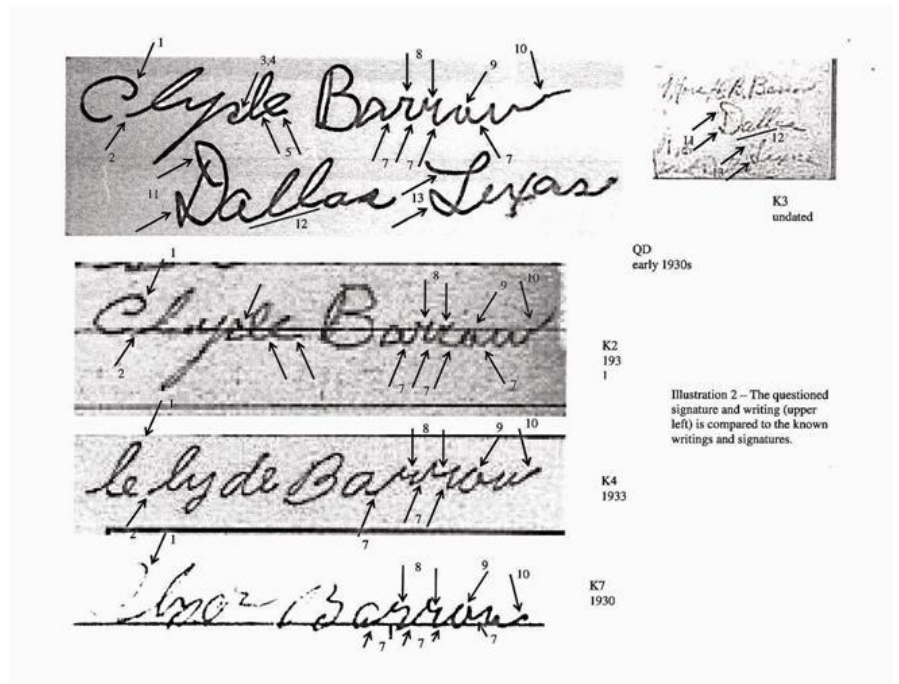 1 3,4 8 9 10
Clyde Barrow
2 5 7 7 7
11 13
Dallas Texas
12
Dallas
11 12
K3
undated
QD
early 1930s
1 8 9 10
Clyde Barrow
2 7 7 7
K2
193
1
Illustration 2 – The questioned
signature and writing (upper
left) is compared to the known
writings and signatures.
1 8 9 10
Clyde Barrow
2 7 7
K4
1933
1 8 9 10
Barrow
7 7 7
K7
1930